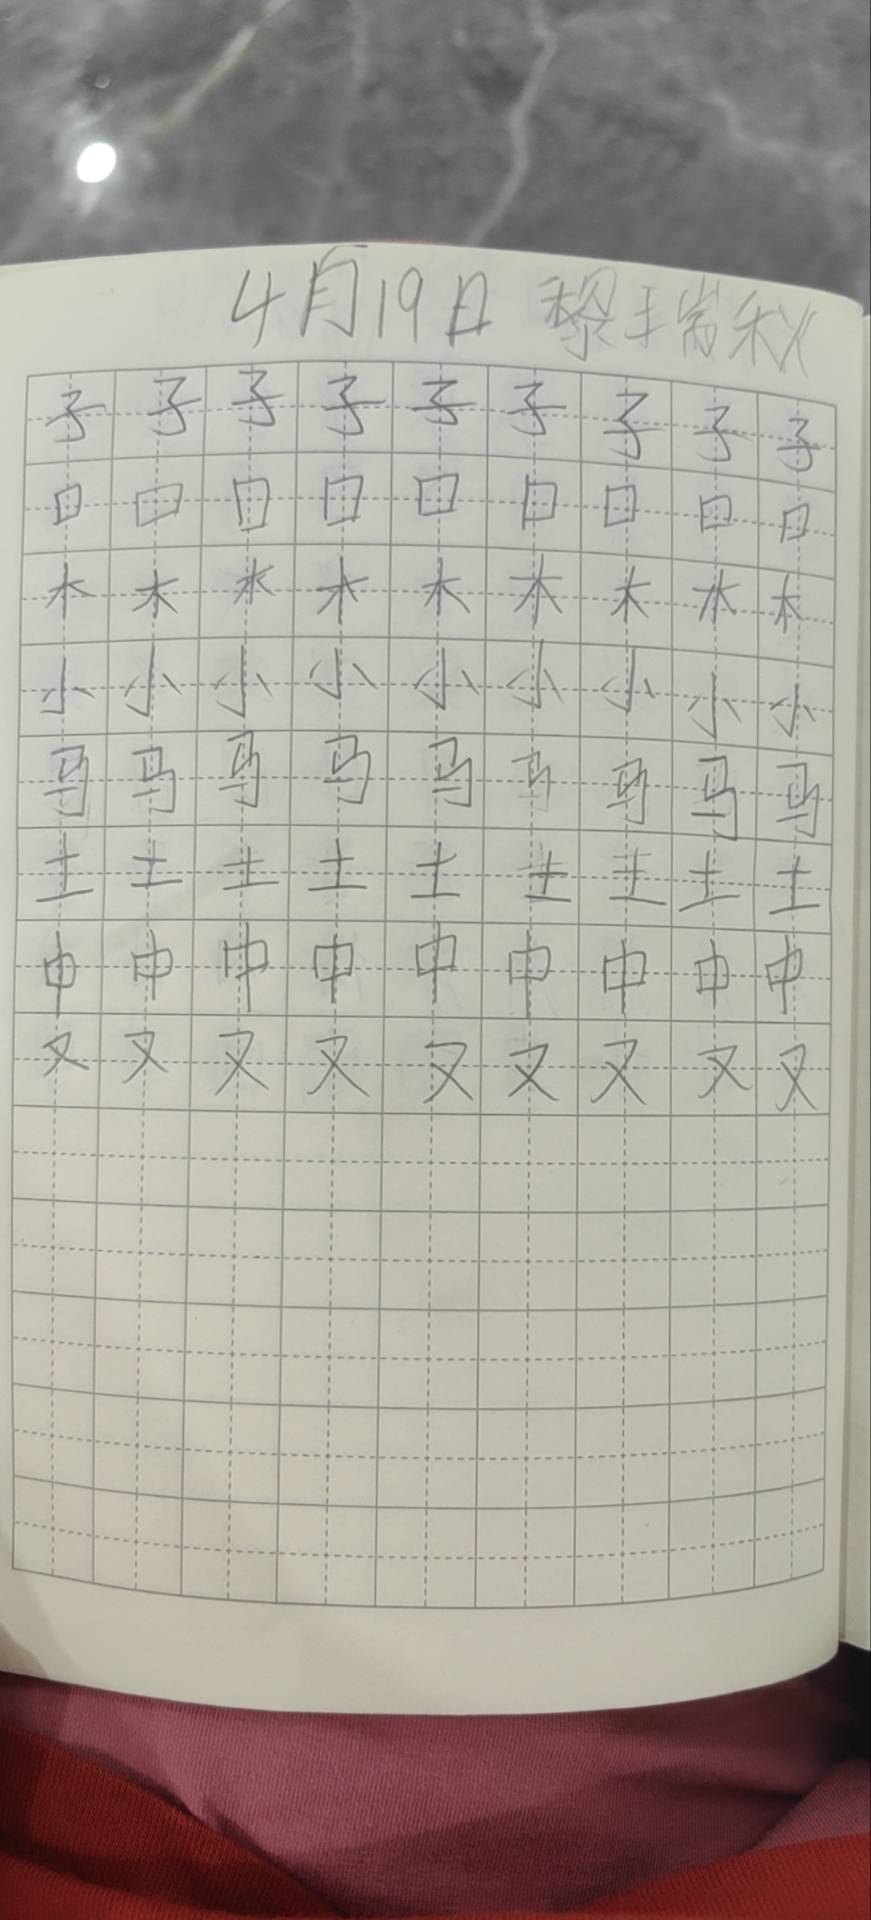 4月19日 黎瑞秋
子子子子子子子子子
口口口口口口口口口
木木木木木木木木木
小小小小小小小小小
马马马马马马马马马
土土土土土土土土土
中中中中中中中中中
又又又又又又又又又